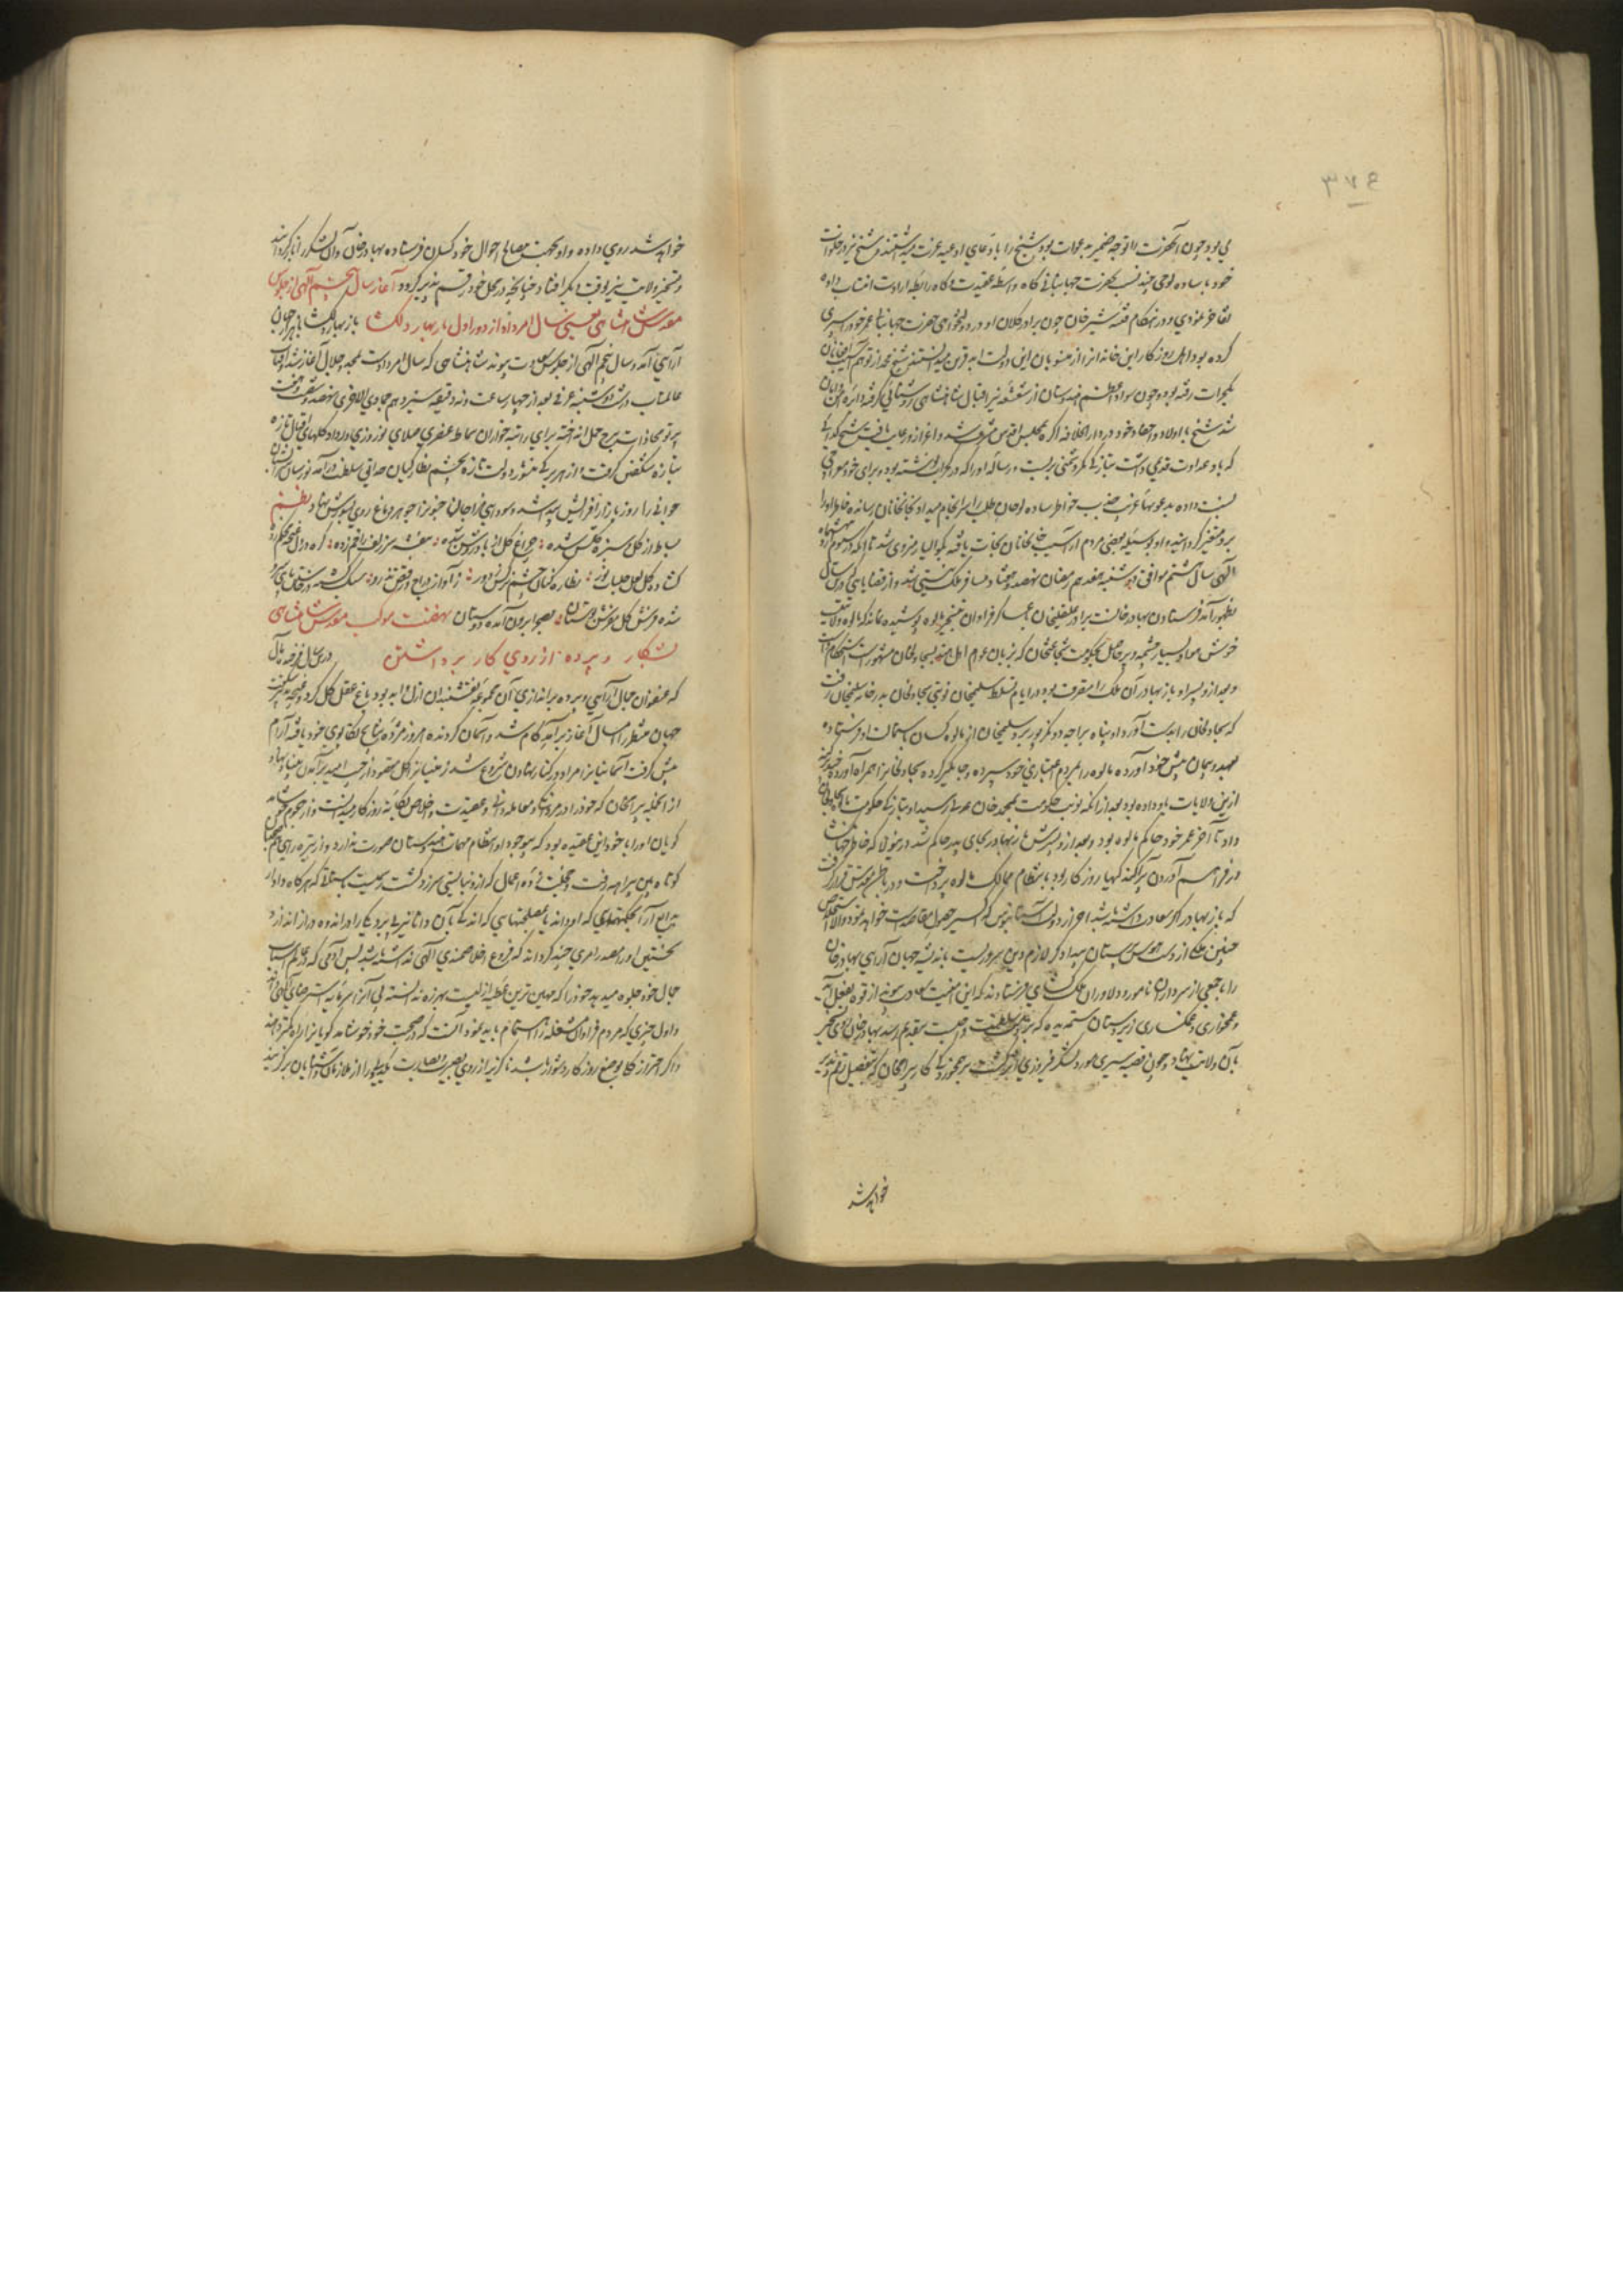 ۳۷۴
بی بود چون آنحضرت را توجه ضمیر به دعوات بود شیخ را با دعای ادعیه عزت میداشتند و شیخ نیز در خلوات
خود با ساده لوحی چند نسبت بحضرت جهانبانی گاه واسطه عقیدت و گاه رابطه ارادت انتساب داده
تفاخر نمودی و در هنگام فتنه شیرخان چون برادر کلان او در دولتخواهی حضرت جهانبانی عمر خود را سپری
کرده بود و اهل روزگار این خانه را از منسوبان این دولت ابد قرین میدانستند شیخ محمد از توهم آسیب افغانان
بگجرات رفته بود و چون سواد اعظم هندوستان از شعشعه نیر اقبال شاهنشاهی روشنائی گرفته دائره امن و امان
شد شیخ با اولاد و احفاد خود در دارالخلافه اگره بمجلس اقدس مشرف شد و اعزاز و رعایت یافت شیخ گدائی
که با او عداوت قدیمی داشت بتازگی کمر دشمنی بربست و رساله او را که در گجرات نوشته بود و برای خود معراجی
نسبت داده بدعویهای غریب جذب خواطر ساده لوحان طلب را سرانجام میداد بخانخانان رسانده خاطر او را
برو متغیر گردانید و او بوسیله بعضی مردم از آسیب خانخانان نجات یافته بگوالیار منزوی شد تا آنکه
الهی سال هشتم موافق دوشنبه هفدهم رمضان نهصد و هفتاد مسافر ملک نیستی شد و از قضایائی که درین سال
بظهور آمد فرستادن بهادرخانست برادر علیقلیخان با عساکر فراوان بتسخیر مالوه پوشیده نماند که مالوه ولایتیست
خوش هوا و بسیار چشمه و پر حاصل بحکومت شجاعتخان که بزبان عوام اهل هند بسجاولخان مشهورست استحکام داشت
و بعد ازو پسر او بازبهادر آن ملک را متصرف بود در ایام تسلط سلیمخان نوبتی سجاولخان بدرخانه سلیمخان رفت
که سجاولخان را بدست آورد او پناه براجه دونگرپور برد و سلیمخان از مالوه کسان باستمالت او فرستاده
بعهد و پیمان پیش خود آورده مالوه را بمردم اعتباری خود سپرده و جایگیر کرده سجاولخان را همراه آورده
ازین ولایات باو داده بود بعد از آنکه نوبت حکومت بمحمدخان عدلی رسید او بتازگی حکومت مالوه بسجاولخان
داد تا آخر عمر خود حاکم مالوه بود و بعد ازو پسرش بازبهادر بجای پدر حاکم شد درینولا که خاطر جهانگشا
در فراهم آوردن پراکندگیهای روزگار بود بانتظام ممالک مالوه پرداخت و در باطن مقدس قرار گرفت
که بازبهادر اگر سعادت داشته باشد احراز دولت آستانبوس که اکسیر حصول مقاصدست خواهد نمود والا استخلاص
چنین ملکی از دست هوس پرستان بیدادگر لازم دین پروریست باندیشه جهان آرائی بهادرخان
را با جمعی از سرداران نامور و دلاوران ملک گشای فرستادند که این امنیت سعادت پیوند از قوه بفعل آید
و غمخواری و غمگساری زیردستان ستمدیده که بر ذمه سلطنت واجبست بتقدیم رسد بهادرخان روی تسخیر
بآن ولایت نهاد و چون قصبه سیری مورد لشکر فیروزی اثر گشت برهمخوردگی کار بیرامخان که بتفصیل رقم پذیر
خواهد شد
خواهد شد روی داده و او بجهت مصالح احوال خود کسان فرستاده بهادرخان و آن لشکر را بازگردانید
و تسخیر ولایت بوقت دیگر افتاد چنانچه در محل خود رقم پذیر گردد آغاز سال پنجم الهی از جلوس
مقدس شاهنشاهی یعنی سال امرداد از دور اول باز بهار دلگشا باز بهار دلگشا با هزار جهان
آرائی آمد و سال پنجم الهی از جلوس سعادت پیوند شاهنشاهی که سال امرداد ست بمجد و جلال آغاز شد آفتاب
عالمتاب در شب دوشنبه عرفی بعد از چهار ساعت و نه دقیقه سیزدهم جمادی الاخری نهصد و شصت و هفت
پرتو محاذات ببرج حمل انداخته برای راتبه خواران سماط عنصری صلای نوروزی درداد و گلهای اقبال تازه
بتازه شگفتن گرفت و از هر برگی منشور دولت تازه بچشم نظارگیان حدائق سلطنت درآمد نورسان بستان
جوانی را روز بازار افزایش پدید شد و سودای مزاجانرا جنون از جوهر دماغ روی بشورش نهاد نظم
بساط از گل و سبزه گلشن شده چراغ گل از باد روشن شده بنفشه سر زلف را خم زده گره در دل غنچه محکم زده
گشاده گل لعل جلباب نور نظاره کنان چشم نرگس ز دور ز آواز دراج و رقص تذرو سبک گشته در خاستن پای سرو
شده فرش گل مفرش بوستان بصحرا برون آمده دوستان نهضت موکب مقدس شاهنشاهی
بشکار و پرده از روی کار برداشتن درین سال فرخنده فال
که عنفوان جمال آرائی و پرده براندازی آن مجموعه نقشبندان ازل و ابد بود باغ عقل کل گرد غنچه
جهان منتظر را امسال آغاز برآمد کام شد و آسمان گردنده امروز مژده نتایج تکاپوی خود یافته آرام
پیش گرفت آسمانیانرا مراد در کنار نهادن شروع شد زمینیانرا گل مقصود از جیب امید برآمدن بنیاد نهاد
از آنجمله بیرامخان که خود را در مردانگی و معامله دانی و عقیدت و اخلاص یگانه روزگار میدانست و از هجوم خوشامد
گویان او را با خود این عقیده بود که بیوجود او انتظام مهمات هندوستان صورت ندارد و از تیره رائی همنشینان
کوتاه بین براهی رفت و خجلت زده اعمال که ازو نبایستی سرزد گشت و بحیرت باستاد که هرگاه دادار
بدایع آرا بحکمتهائی که او داند یا بمصلحتهائی که اندکی بآن دانا نیز پی برد یکی را در اندوه دراز اندازد
نخستین او را مصدر امری چند گرداند که فروغ اخلاصمندی الهی نداشته باشد پس آدمی که در عالم اسباب
جمال خود جلوه میدهد خود را که مهین ترین عطیه ازلیست بهرزه ندانسته پی آنرا سرمایه استرضای الهی داند
و اول چیزی که مردم فراوان مشغله را اهتمام باید نمود آنست که صحبت خود خوشامد گویانرا راه کمتر دهند
و اگر احتراز کلی بوضع روزگار دشوار باشد ناگزیر از روی بصیرت یک دو کس را از ملازمان و آشنایان برگزیند